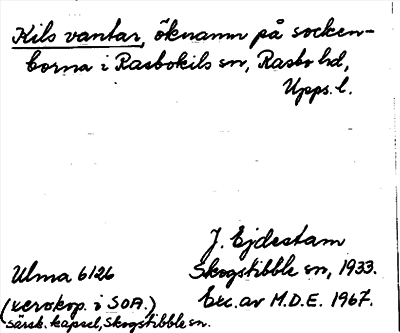 Kils vantar, öknamn på socken-
borna i Rasbokils sn, Rasbo hd,
Upps. l.
J. Ejdestam
Ulma 6126 Skogstibble sn, 1933.
(xerokop. i SOA.) Exc. av M.D.E. 1967.
särsk. kapsel, Skogstibble sn.